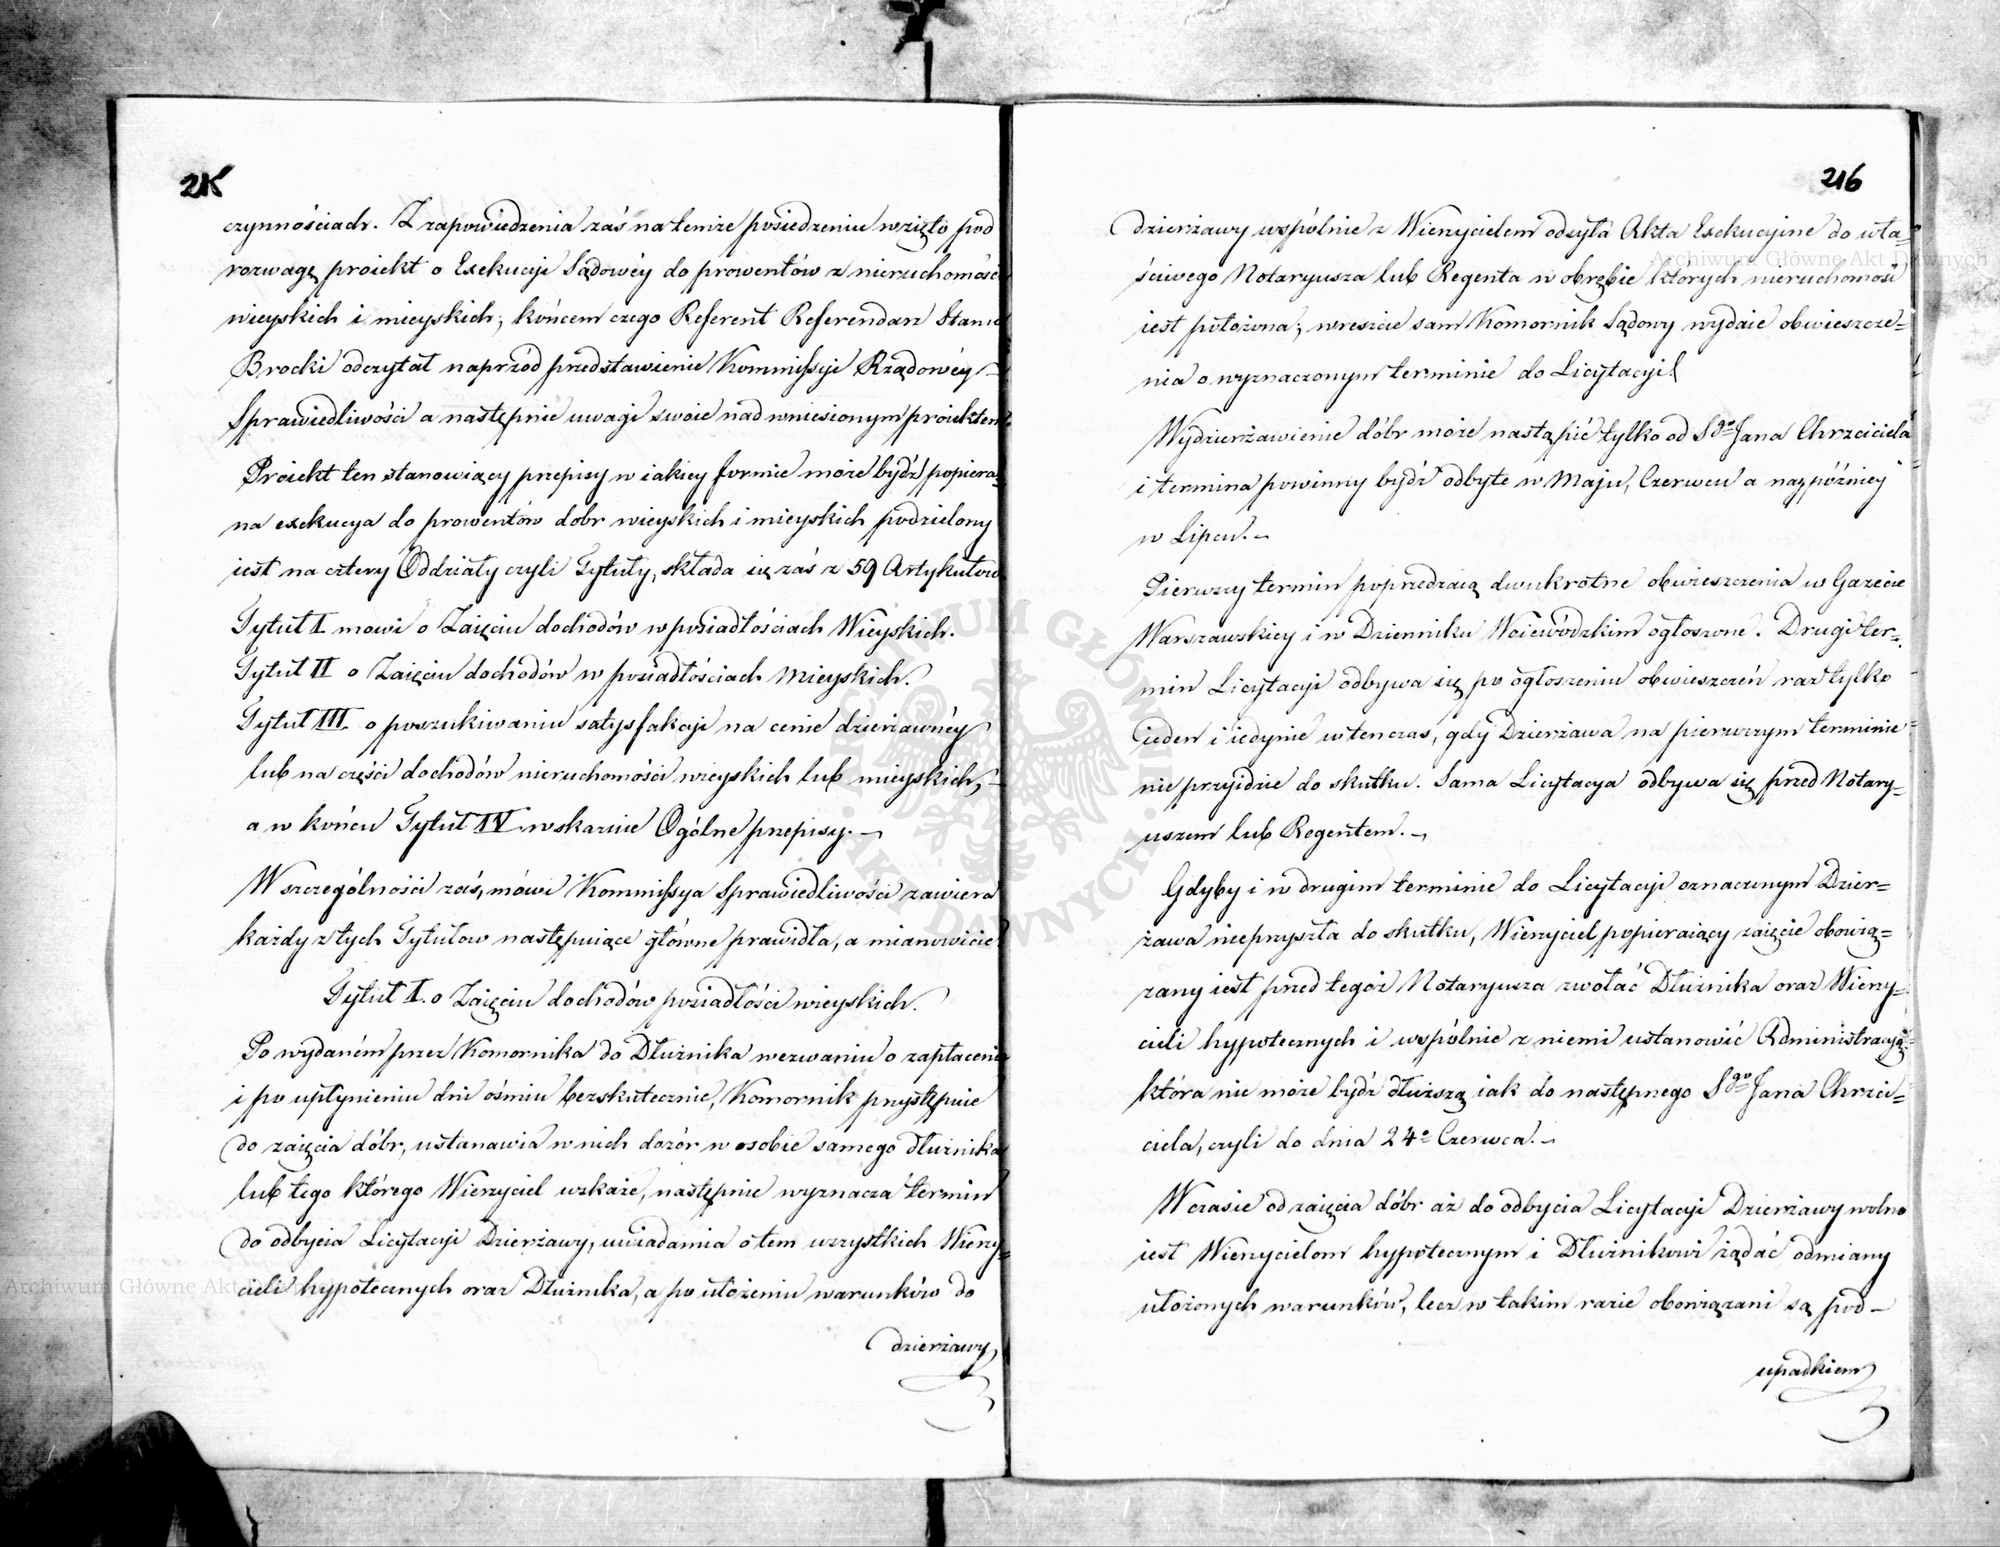 215
czynnościach. Z zapowiedzenia zaś na temże posiedzeniu wzięto pod
rozwagę proiekt o Exekucyi Sądowéy do prowentów z nieruchomości
wieyskich i mieyskich; końcem czego Referent Referendarz Stanu
Brocki odczytał naprzód przedstawienie Kommissyi Rządowéy
Sprawiedliwości a następnie uwagi swoie nad wniesionym proiektem
Proiekt ten stanowiący przepisy w iakiey formie może bydź popiera-
na exekucya do prowentów dobr wieyskich i mieyskich podzielony
iest na cztery Oddziały czyli Tytuły, składa się zaś z 59 Artykułów
Tytuł I. mowi o Zaięciu dochodów w posiadłościach Wieyskich.
Tytuł II o Zaięciu dochodów w posiadłościach Mieyskich.
Tytuł III. o poszukiwaniu satysfakcyi na cenie dzierżawnéy
lub na części dochodów nieruchomości wieyskich lub mieyskich,
a w końcu Tytuł IV wskazuie Ogólne przepisy.
W szczególności zaś, mówi Kommissya Sprawiedliwości zawiera
każdy z tych Tytułow następuiące główne prawidła, a mianowicie
Tytuł I. o Zaięciu dochodów posiadłości wieyskich.
Po wydaném przez Komornika do Dłużnika wezwaniu o zapłacenie
i po upłynieniu dni ośmiu bezskutecznie, Komornik przystępuie
do zaięcia dóbr, ustanawia w nich dozór w osobie samego dłużnika
lub tego którego Wierzyciel wskaże, następnie wyznacza termin
do odbycia Licytacyi Dzierżawy, uwiadamia o tem wszystkich Wierzy-
cieli hypotecznych oraz Dłużnika, a po ułożeniu warunków do
dzierżawy
216
dzierżawy wspólnie z Wierzycielem odsyła Akta Exekucyine do wła-
ściwego Notaryusza lub Regenta w obrębie których nieruchomość
iest położona; wreszcie sam Komornik Sądowy wydaie obwieszcze-
nia o wyznaczonym terminie do Licytacyi.
Wydzierżawienie dóbr może nastąpić tylko od Sgo Jana Chrzciciela
i termina powinny bydź odbyte w Maju, Czerwcu a naypóźniey
w Lipcu.
Pierwszy termin poprzedzaią dwukrotne obwieszczenia w Gazecie
Warszawskiey i w Dzienniku Woiewódzkim ogłoszone. Drugi ter-
min Licytacyi odbywa się po ogłoszeniu obwieszczeń raz tylko
ieden i iedynie wtenczas, gdy Dzierżawa na pierwszym terminie
nie przyidzie do skutku. Sama Licytacya odbywa się przed Notary-
uszem lub Regentem.
Gdyby i w drugim terminie do Licytacyi oznaczonym Dzier-
żawa nieprzyszła do skutku, Wierzyciel popieraiący zaięcie obowią-
zany iest przed tegoż Notaryusza zwołać Dłużnika oraz Wierzy-
cieli hypotecznych i wspólnie z niemi ustanowić Administracyą
która nie może bydź dłuższą iak do następnego Sgo Jana Chrzci-
ciela, czyli do dnia 24o Czerwca.
W czasie od zaięcia dóbr aż do odbycia Licytacyi Dzierżawy wolno
iest Wierzycielom hypotecznym i Dłużnikowi żądać odmiany
ułożonych warunków, lecz w takim razie obowiązani są pod
upadkiem
Archiwum Główne Akt Dawnych
Archiwum Główne Akt Dawnych
ARCHIWUM GŁÓWNE AKT DAWNYCH